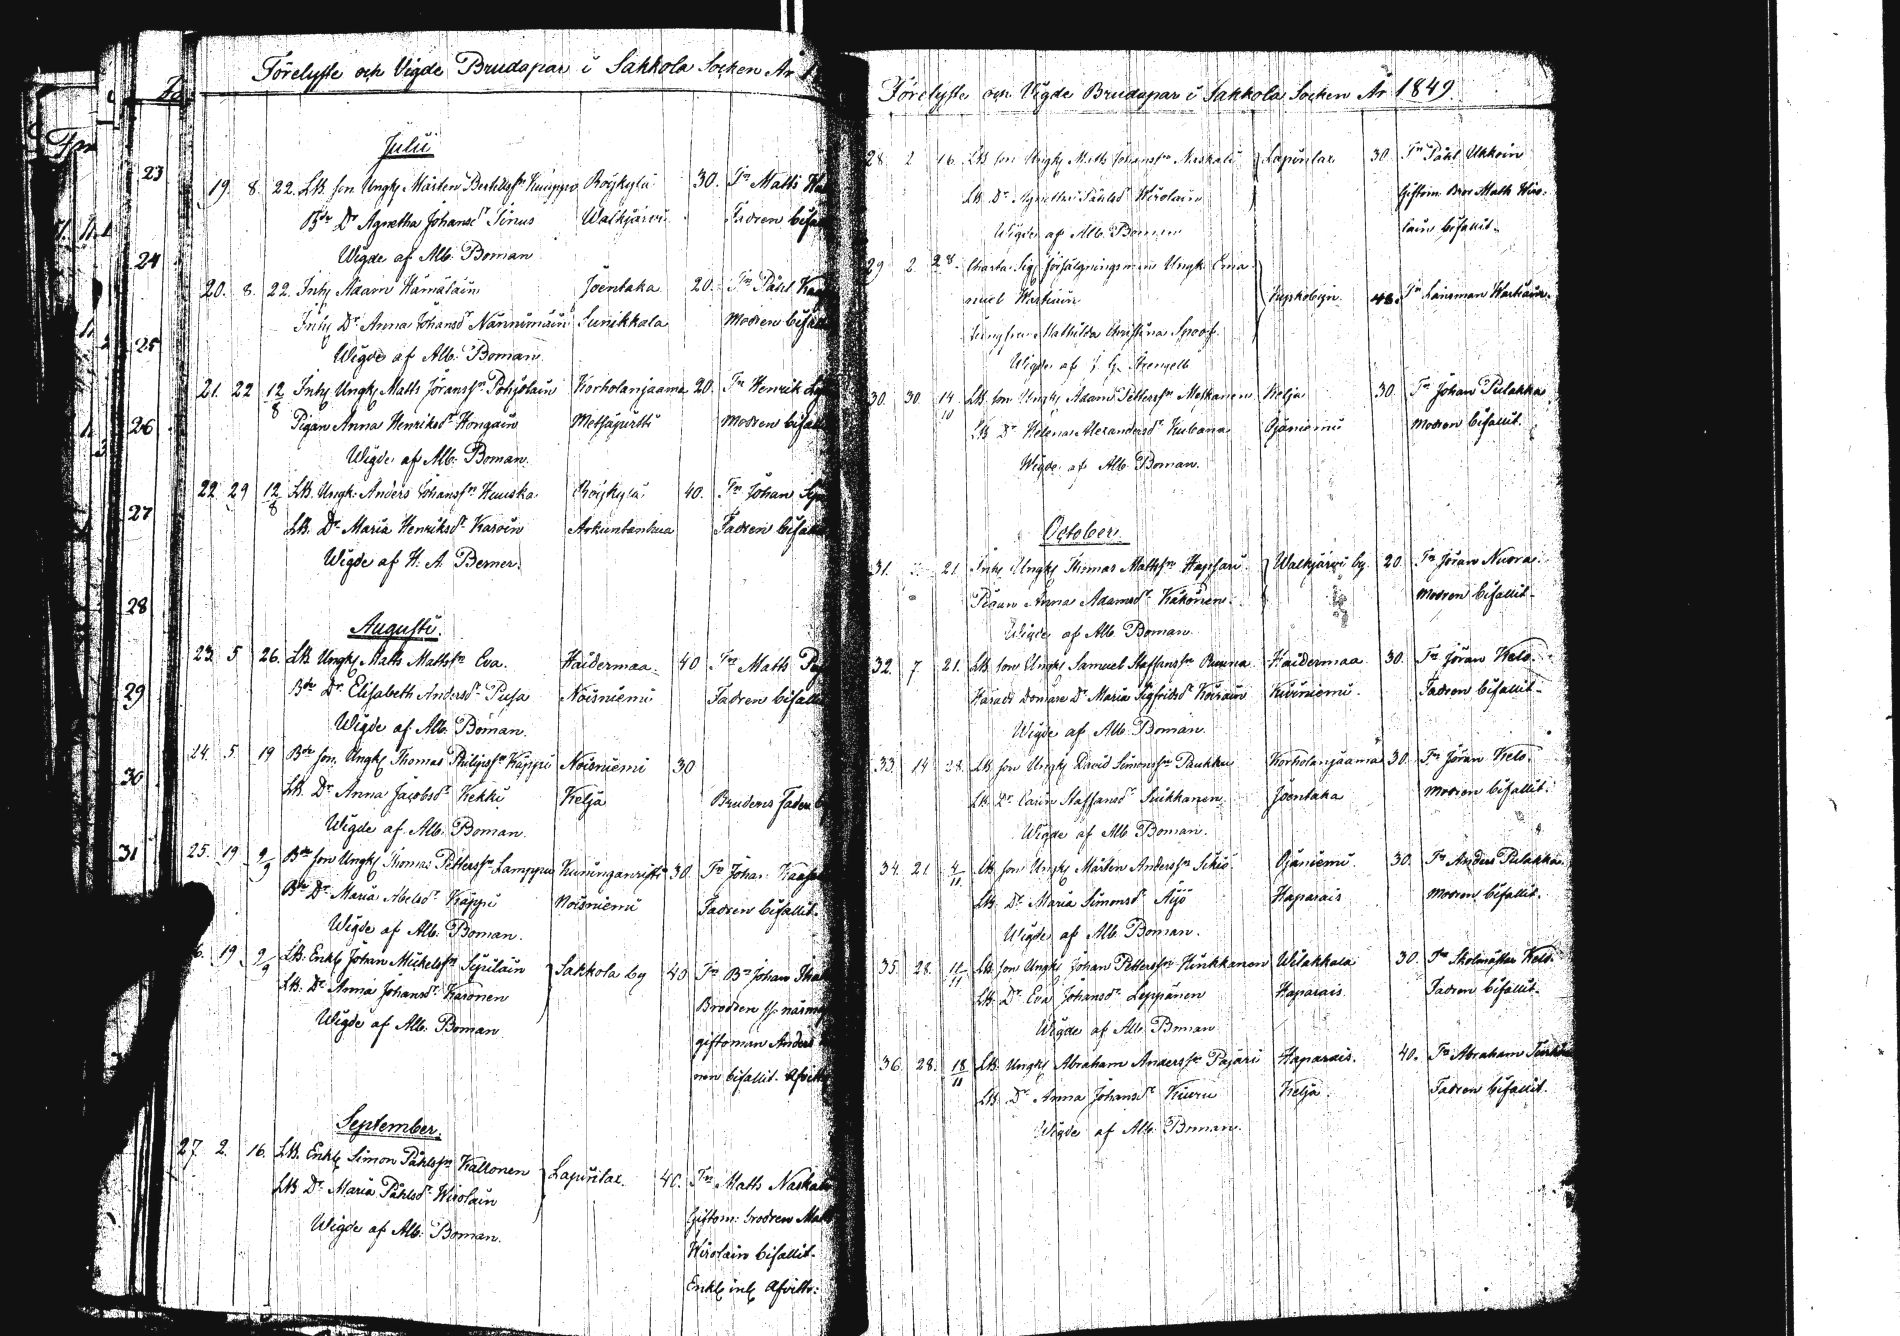 Förelyste och Vigde Brudapar i Sakkola Socken År
Julii
19. 8. 22. LB. son Ungk Mårten Bertillss. Kuuppo Röykylä 30. Fm Matts
Bdr Dr Agnetha Johansdr Sinus Walkjärvi Fadren bifall
Wigde af Alb. Boman
20. 8. 22. Inh Adam Hämäläin Joentaka 20. Fm Påhl
Inh Dr Anna Johansdr Nännimäin Sunikkala Modren bifall
Wigde af Alb. Boman.
21. 22 12/8 Inh Ungk Matts Jöranssn Pohjolain Korholanjaama 20. Fm Henrik
Pigan Anna Henriksdr Hongain Metsäpirtti Modren bifall
Wigde af Alb. Boman.
22 29 12/8 LB. Ungk Anders Johanssn Huuska Röykylä 40. Fm Johan
LB. Dr Maria Henriksdr Karvin Arkuntanhua Fadren bifall
Wigde af H. A. Berner.
Augusti.
23. 5 26. LB. Ungk Matts Mattssn Eva. Haidermaa. 40 Fm Matts
Bdr Dr Elisabeth Andersdr Pusa Noisniemi Fadren bifall
Wigde af Alb. Boman.
24. 5 19 Bdr son Ungk Thomas Philipssn Käppi Noisniemi 30
LB. Dr Anna Jacobsdr Kekki Kelja Brudens Fader
Wigde af Alb. Boman.
25. 19 2/9 Bdr son Ungk Thomas Petterssn Lamppu Kuninganristi 30 Fm Johan
Bdr Dr Maria Abelsdr Käppi Noisniemi Fadren bifallit.
Wigde af Alb. Boman.
6. 19 2/9 LB. Enkl Johan Mickelssn Sipiläin Sakkola by 40 Fm Bdr Johan
LB. Dr Anna Johansdr Karonen Brodren
Wigde af Alb. Boman giftoman Anders
nen bifallit.
September.
27. 2. 16. LB. Enkl Simon Påhlssn Kaltonen Lapinlax. 40. Fm Matts Naskali
LB Dr Maria Påhlsdr Wirolain Giftom: brodren Matts
Wigde af Alb. Boman. Wirolain bifallit.
Enkl
Förelyste och Vigde Brudapar i Sakkola Socken År 1849.
28. 2 16. LB. son Ungk Matts Johanssn Naskali Lapinlax 30. Fm Påhl Ukkoin
LB. Dr Agnetha Påhlsdr Wirolain Giftom Bror Matts Wiro-
Wigde af Alb. Boman lain bifallit.
29 2. 28. Charta Sig. försälgningsman Ungk Ema-
nuel Warhiain 48. Fm Länsman Warhiain.
Jungfru Mathilda Christina Spoof.
Wigde af J. G. Strengell
30 30 14/10 LB. son Ungk Adam Petterssn Meskanen Kelja 30. Fm Johan Pulakka
LB Dr Helena Alexandersdr Kubana Ojaniemi Modren bifallit.
Wigde af Alb. Boman.
October.
31. 21. Inh Ungk Thomas Mattssn Hapsari Walkjärvi by 20. Fm Jöran Nuora.
Pigan Anna Adamsdr Kähönen. Modren bifallit.
Wigde af Alb. Boman.
32. 7 21. LB. son Ungk Samuel Staffanssn Ruuna Haidermaa 30. Fm Jöran Kelo.
Härads Domare Dr Maria Sigfridsdr Koirain Kiviniemi. Fadren bifallit.
Wigde af Alb. Boman.
33. 14 28. LB. son Ungk David Simonssn Paukku Korholanjaama 30. Fm Jöran Kelo.
LB. Dr Carin Staffansdr Suikkanen. Joentaka Modren bifallit.
Wigde af Alb. Boman.
34. 21 4/11 LB. son Ungk Mårten Anderssn Sikiö Ojaniemi 30. Fm Anders Pulakka
LB. Dr Maria Simonsdr Äijö Haparais Modren bifallit.
Wigde af Alb. Boman.
35. 28. 11/11 LB. son Ungk Johan Petterssn Hinkkanen Wilakkala 30. Fm Skolmästar Kelo.
LB. Dr Eva Johansdr Leppänen Haparais Fadren bifallit.
Wigde af Alb. Boman
36. 28. 18/11 LB. Ungk Abraham Anderssn Pajari Haparais. 40. Fm Abraham
LB. Dr Anna Johansdr Kiuru Kelja. Fadren bifallit.
Wigde af Alb. Boman.
23
24
25
26
27
28
29
30
31